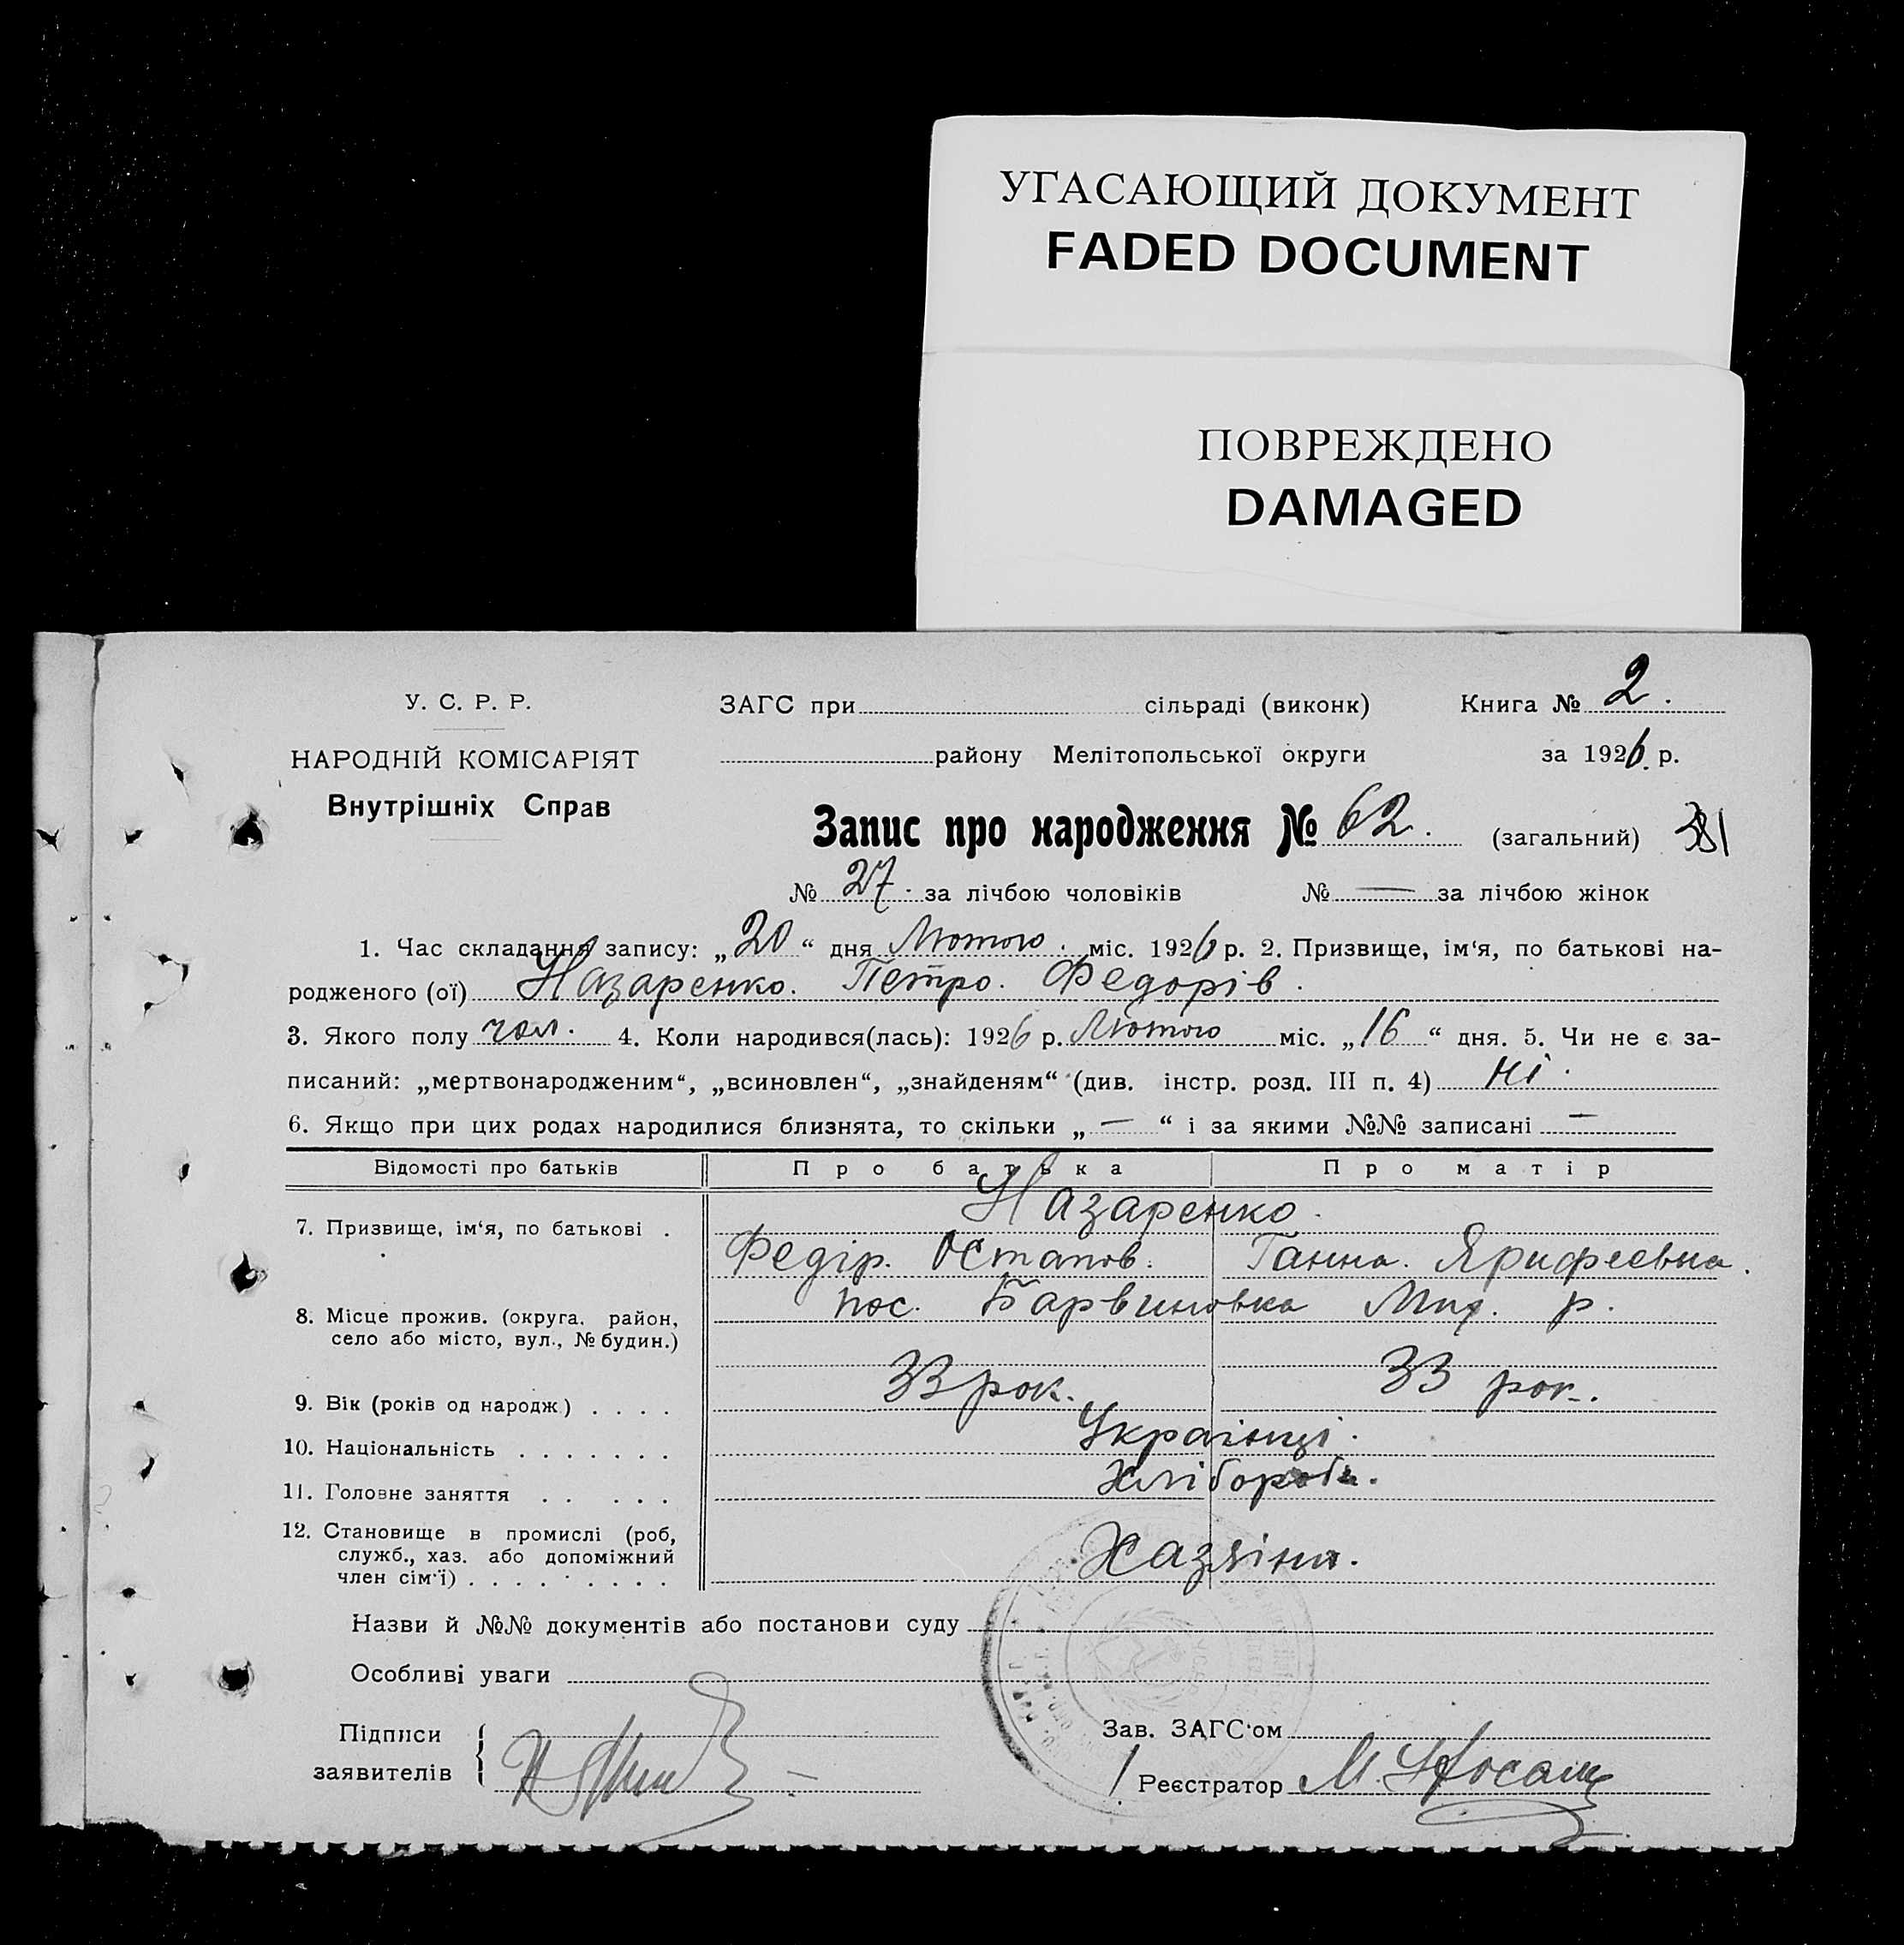 УГАСАЮЩИЙ ДОКУМЕНТ
FADED DOCUMENT
ПОВРЕЖДЕНО
DAMAGED
У. С. Р. Р.
НАРОДНІЙ КОМІСАРІЯТ
Внутрішніх Справ
ЗАГС при сільраді (виконк) Книга № 2.
району Мелітопольської округи за 1926 р.
Запис про народження № 62. (загальний)
№ 27. за лічбою чоловіків № — за лічбою жінок
1. Час складання запису: „20“ дня Лютого. міс. 1926 р. 2. Призвище, ім‘я, по батькові на-
родженого (ої) Назаренко. Петро. Федорів.
3. Якого полу чол. 4. Коли народився(лась): 1926 р. Лютого міс. „16“ дня. 5. Чи не є за-
писаний: „мертвонародженим“, „всиновлен“, „знайденям“ (див. інстр. розд. III п. 4) Ні.
6. Якщо при цих родах народилися близнята, то скільки „—“ і за якими №№ записані —
Відомості про батьків Про батька Про матір
Назаренко.
7. Призвище, ім‘я, по батькові .
Федір. Остапов. Ганна.
пос. Барвиновка р.
8. Місце прожив. (округа. район,
село або місто, вул., № будин.)
33 рок. 33 рок.
9. Вік (років од народж) . . . .
Українці.
10. Національність . . . . . . .
Хлібороби.
11. Головне заняття . . . . .
12. Становище в промислі (роб,
служб., хаз. або допоміжний
член сім‘ї) . . . . . . . . .
Хазяіни.
Назви й №№ документів або постанови суду
Особливі уваги
Підписи
заявителів
Зав. ЗАГС‘ом
Реєстратор М.